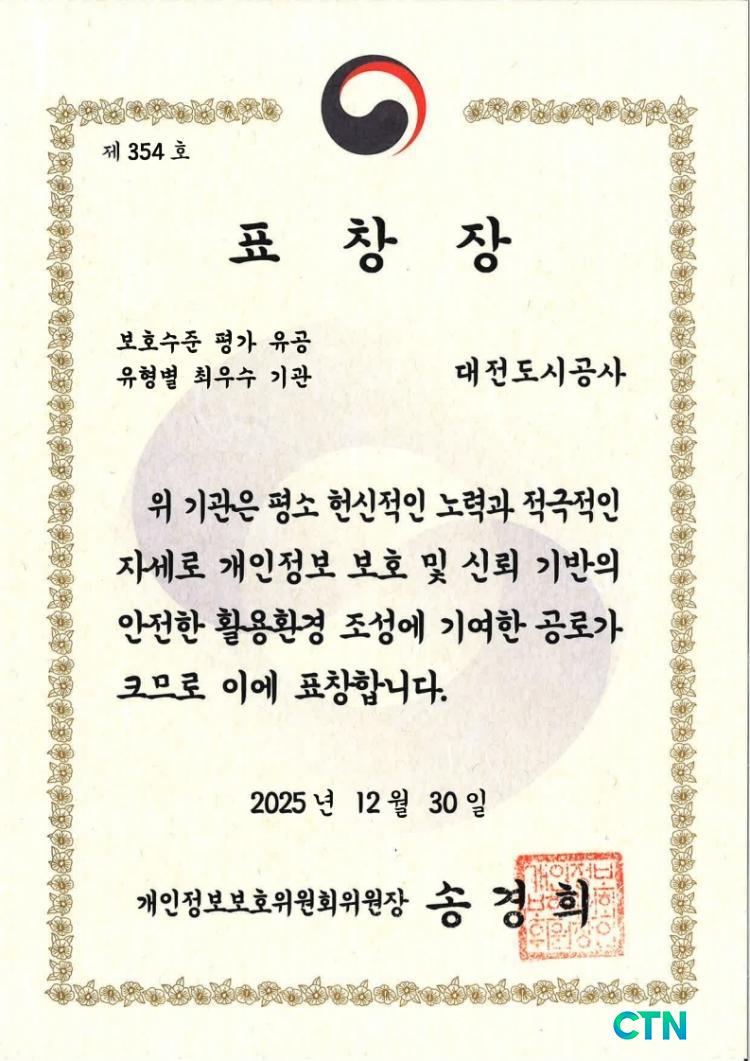 제 354 호
표 창 장
보호수준 평가 유공
유형별 최우수 기관
대전도시공사
위 기관은 평소 헌신적인 노력과 적극적인
자세로 개인정보 보호 및 신뢰 기반의
안전한 활용환경 조성에 기여한 공로가
크므로 이에 표창합니다.
2025 년 12 월 30 일
개인정보보호위원회위원장 송 경 희
개인정보
보호위원
회위원장인
CTN